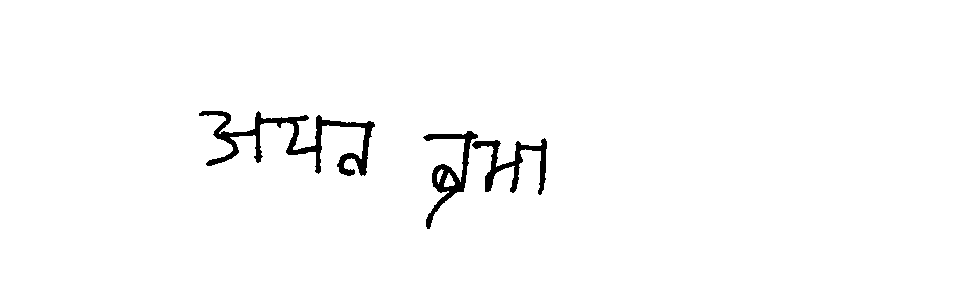 अयन बुमा